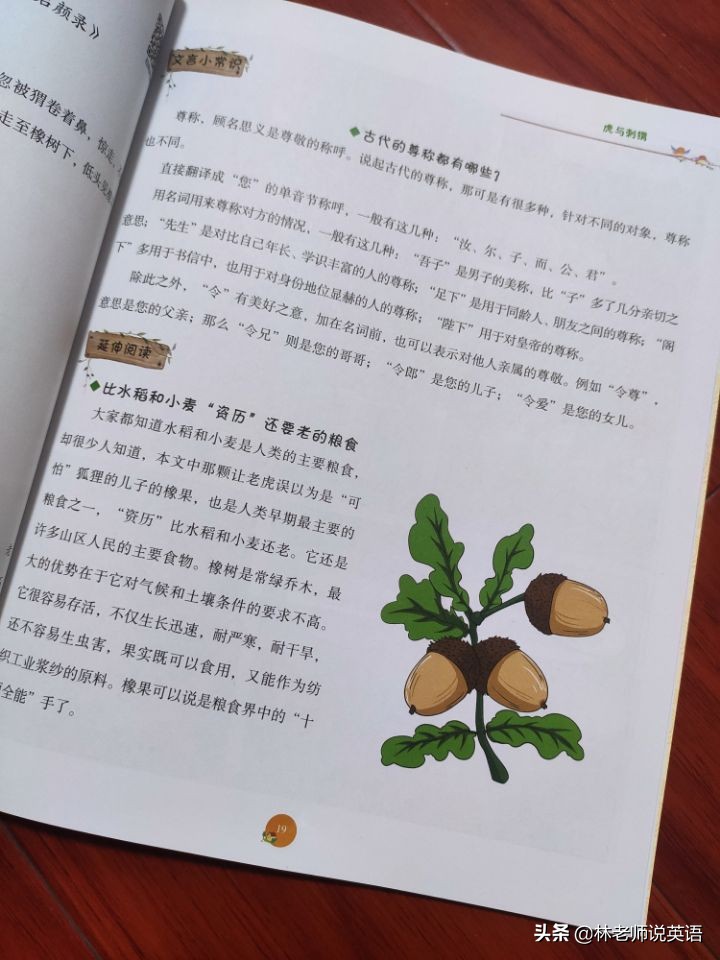 启颜录》
忽被猬卷着鼻，惊走，
走至橡树下，低头见
虎与刺猬
文言小常识
古代的尊称都有哪些？
尊称，顾名思义是尊敬的称呼。说起古代的尊称，那可是有很多种，针对不同的对象，尊称
也不同。
直接翻译成“您”的单音节称呼，一般有这几种：“汝、尔、子、而、公、君”。
用名词用来尊称对方的情况，一般有这几种：“吾子”是男子的美称，比“子”多了几分亲切之
意思；“先生”是对比自己年长、学识丰富的人的尊称；“足下”是用于同龄人、朋友之间的尊称；“阁
下”多用于书信中，也用于对身份地位显赫的人的尊称；“陛下”用于对皇帝的尊称。
除此之外，“令”有美好之意，加在名词前，也可以表示对他人亲属的尊敬。例如“令尊”，
意思是您的父亲；那么“令兄”则是您的哥哥；“令郎”是您的儿子；“令爱”是您的女儿。
延伸阅读
比水稻和小麦“资历”还要老的粮食
大家都知道水稻和小麦是人类的主要粮食，
却很少人知道，本文中那颗让老虎误以为是“可
怕”狐狸的儿子的橡果，也是人类早期最主要的
粮食之一，“资历”比水稻和小麦还老。它还是
许多山区人民的主要食物。橡树是常绿乔木，最
大的优势在于它对气候和土壤条件的要求不高。
它很容易存活，不仅生长迅速，耐严寒，耐干旱，
还不容易生虫害，果实既可以食用，又能作为纺
织工业浆纱的原料。橡果可以说是粮食界中的“十
项全能”手了。
19
头条 @林老师说英语